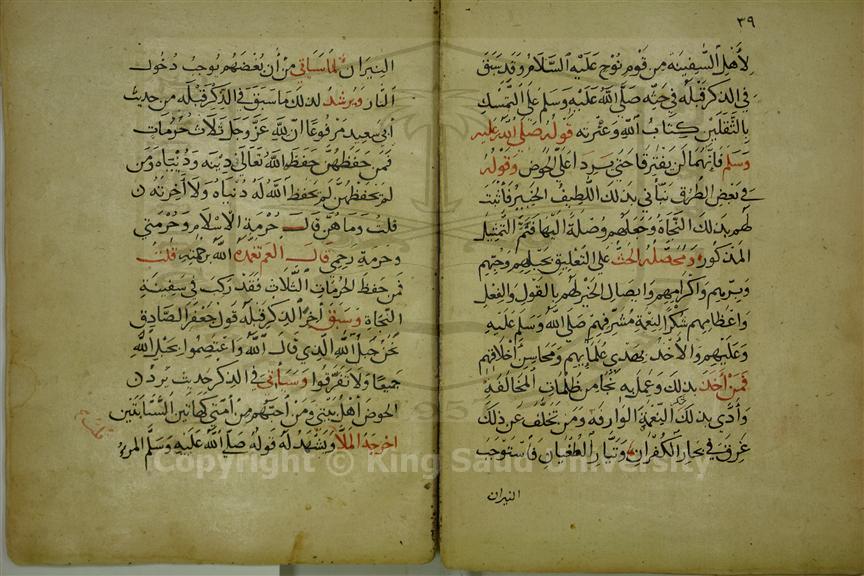 ٣٩
لأهل السفينة من قوم نوح عليه السلام وقد سبق
في الذكر قبله في حثه صلى الله عليه وسلم على التمسك
بالثقلين كتاب الله وعترته قوله صلى الله عليه
وسلم فإنهما لن يفترقا حتى يردا على الحوض وقوله
في بعض الطرق نبأني بذلك اللطيف الخبير فأثبت
لهم بذلك النجاة وجعلهم وصلة إليها فتم التمثيل
المذكور ومحصله الحث على التعليق بحبلهم وحبهم
وبرهم وإكرامهم وإيصال الخير لهم بالقول والفعل
وإعظامهم شكرا لنعمة مشرفهم صلى الله وسلم عليه
وعليهم والأخذ بهدي علمائهم ومحاسن أخلاقهم
فمن أخذ بذلك وعمل به نجا من ظلمات المخالفة
وأدى بذلك النعمة الوارفة ومن تخلف عن ذلك
غرق في بحار الكفران وتيار الطغيان فاستوجب
النيران
النيران لما سيأتي من أن بغضهم يوجب دخول
النار ويرشد لذلك ما سبق في الذكر قبله من حديث
أبي سعيد مرفوعا إن لله عز وجل ثلاث حرمات
فمن حفظهن حفظ الله تعالى دينه ودنياه ومن
لم يحفظهن لم يحفظ الله له دنياه ولا آخرته
قلت وما هن قال حرمة الإسلام وحرمتي
وحرمة رحمي قال العم تغمده الله برحمته قلت
فمن حفظ الحرمات الثلاث فقد ركب في سفينة
النجاة وسبق آخر الذكر قبله قول جعفر الصادق
نحن حبل الله الذي قال الله واعتصموا بحبل الله
جميعا ولا تفرقوا وسيأتي في الذكر حديث يردن
الحوض أهل بيتي ومن أحبهم من أمتي كهاتين السبابتين
أخرجه الملا ويشهد له قوله صلى الله عليه وسلم المرء
Copyright © King Saud University